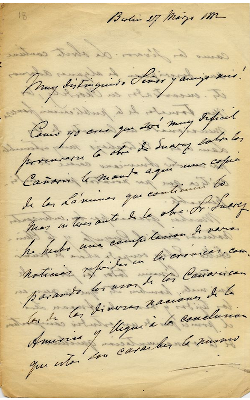 18
Berlin 27 Março 1882
Muy distinguido Señor y amigo mio!
Como yo creo que será muy dificil
la obra de Suarez sobre los
Cañaris le mando aqui una copia
de las Láminas que contienen lo
mas interesante de la obra. Sr Suarez
ha hecho una compilacion de varias
noticias en los cronicas, com
parando los usos de los Cañaris con
los de las diversas naciones de la
America y llegué a la conclusion
que estos son la misma